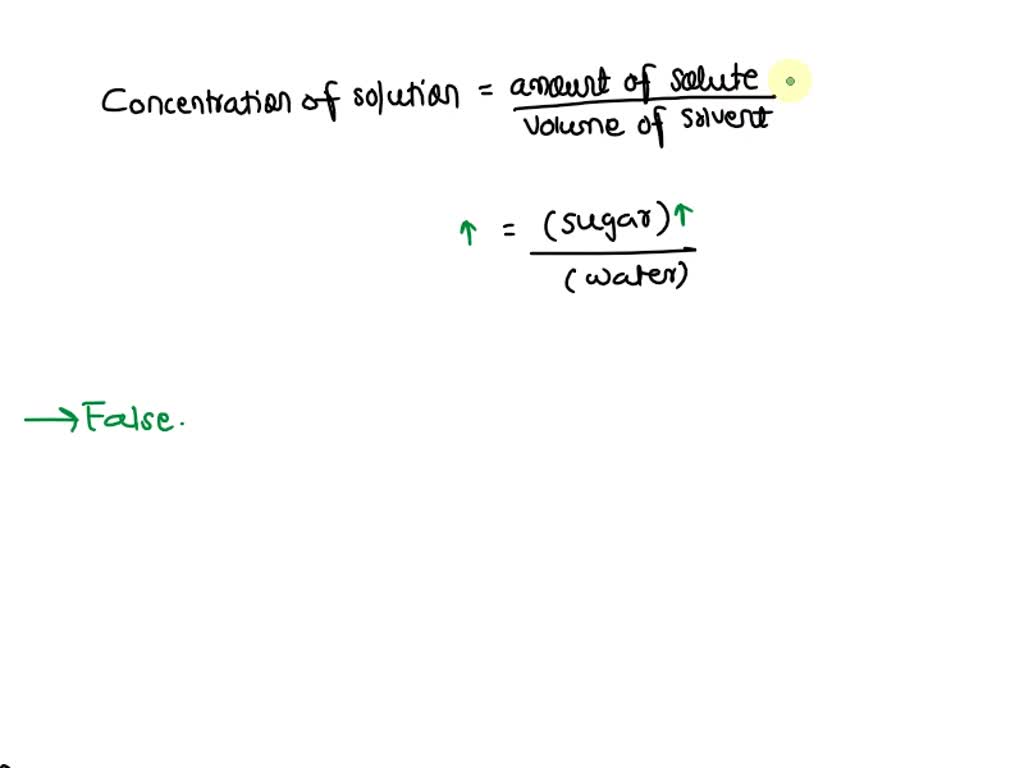 Concentration of solution = amount of solute
volume of solvent
↑ = (sugar)↑
(water)
→ False.